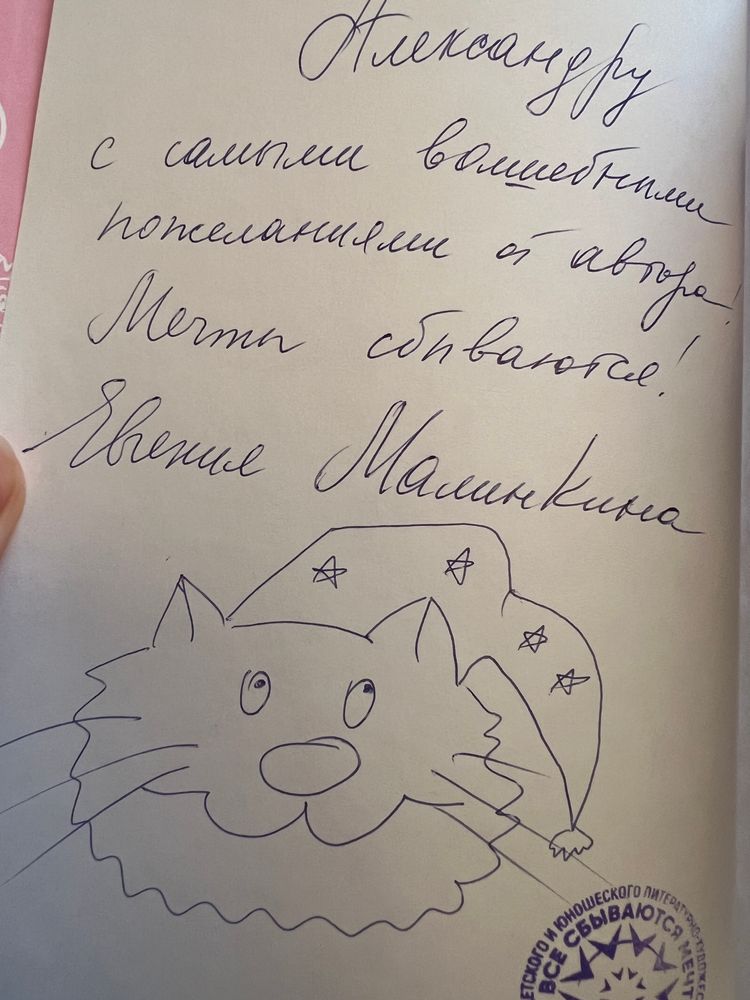 Александру
с самыми волшебными
пожеланиями от автора!
Мечты сбываются!
Евгения Малинкина
ЮНОШЕСКОГО ЛИТЕРАТУРНО-
ВСЕ СБЫВАЮТСЯ